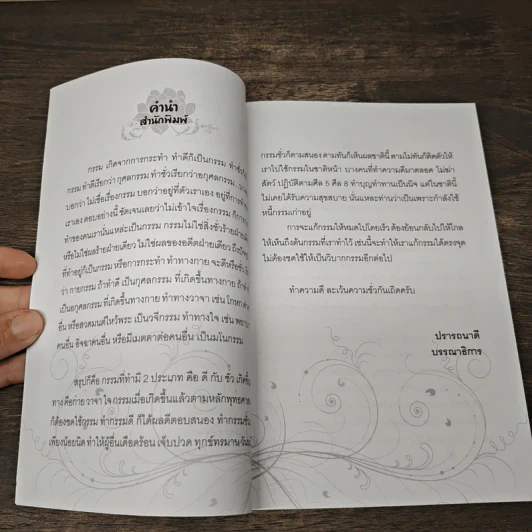 คำนำ
สำนักพิมพ์
กรรม เกิดจากการกระทำ ทำดีก็เป็นกรรม ทำชั่วก็
กรรม ทำดีเรียกว่า กุศลกรรม ทำชั่วเรียกว่าอกุศลกรรม
บอกว่า ไม่เชื่อเรื่องกรรม บอกว่าอยู่ที่ตัวเราเอง อยู่ที่การทำ
เราเอง ตอบอย่างนี้ ชัดเจนเลยว่าไม่เข้าใจเรื่องกรรม ก็การ
ทำของคนเรานั่นแหละเป็นกรรม กรรมไม่ใช่สิ่งชั่วร้ายฝ่าย
หรือไม่ใช่ผลร้ายฝ่ายเดียว ไม่ใช่ผลของอดีตฝ่ายเดียว ถึงปัจจุ
ที่ทำอยู่ก็เป็นกรรม หรือการกระทำ ทำทางกาย จะดีหรือชั่ว
ว่า กายกรรม ถ้าทำดี เป็นกุศลกรรม ที่เกิดขึ้นทางกาย ถ้า
เป็นอกุศลกรรม ที่เกิดขึ้นทางกาย ทำทางวาจา เช่น โกหก
อื่น หรือสวดมนต์ไหว้พระ เป็นวจีกรรม ทำทางใจ เช่น
คนอื่น อิจฉาคนอื่น หรือมีเมตตาต่อคนอื่น เป็นมโนกรรม
สรุปก็คือ กรรมที่ทำมี 2 ประเภท คือ ดี กับ ชั่ว เกิดขึ้น
ทาง คือกาย วาจา ใจ กรรมเมื่อเกิดขึ้นแล้วตามหลักพุทธศา
ก็ต้องชดใช้กรรม ทำกรรมดี ก็ได้ผลดีตอบสนอง ทำกรรมชั่ว
เพียงน้อยนิด ทำให้ผู้อื่นเดือดร้อน เจ็บปวด ทุกข์ทรมาน
กรรมชั่วก็ตามสนอง ตามทันก็เห็นผลชาตินี้ ตามไม่ทันก็ติดตัวให้
เราไปใช้กรรมในชาติหน้า บางคนที่ทำความดีมาตลอด ไม่ฆ่า
สัตว์ ปฏิบัติตามศีล 5 ศีล 8 ทำบุญทำทานเป็นนิจ แต่ในชาตินี้
ไม่เคยได้รับความสุขสบาย นั่นแหละท่านว่าเป็นเพราะกำลังใช้
หนี้กรรมเก่าอยู่
การจะแก้กรรมให้หมดไปโดยเร็ว ต้องย้อนกลับไปให้ไกล
ให้เห็นถึงต้นกรรมที่เราทำไว้ เช่นนี้จะทำให้เราแก้กรรมได้ตรงจุด
ไม่ต้องชดใช้ให้เป็นวิบากกรรมอีกต่อไป
ทำความดี ละเว้นความชั่วกันเถิดครับ
ปรารถนาดี
บรรณาธิการ